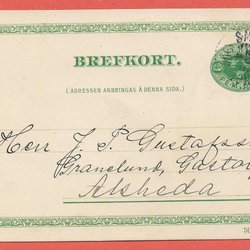 BREFKORT.
(ADRESSEN ANBRINGAS Å DENNA SIDA.)
Herr J. P. Gustafss
Granelund, Gustaf
Alsheda